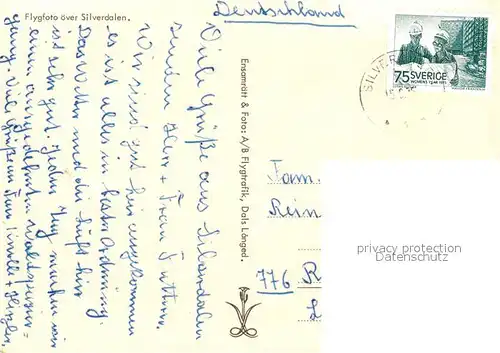 Flygfoto över Silverdalen.
Deutschland
75 SVERIGE
WOMENS YEAR 1975
SILVER
Viele Grüße aus Silverdalen
senden Herr + Frau
Wir sind gut hier angekommen
es ist alles in bester Ordnung.
Das Wetter und die Luft hier
ist sehr gut. Jeden Tag machen wir
einen ausgedehnten Waldspazier-
gang. Viele Grüße an Fam.
Ensamrätt & Foto: A/B Flygtrafik, Dals Långed.
Fam.
Rein
776 R
L
privacy protection
Datenschutz